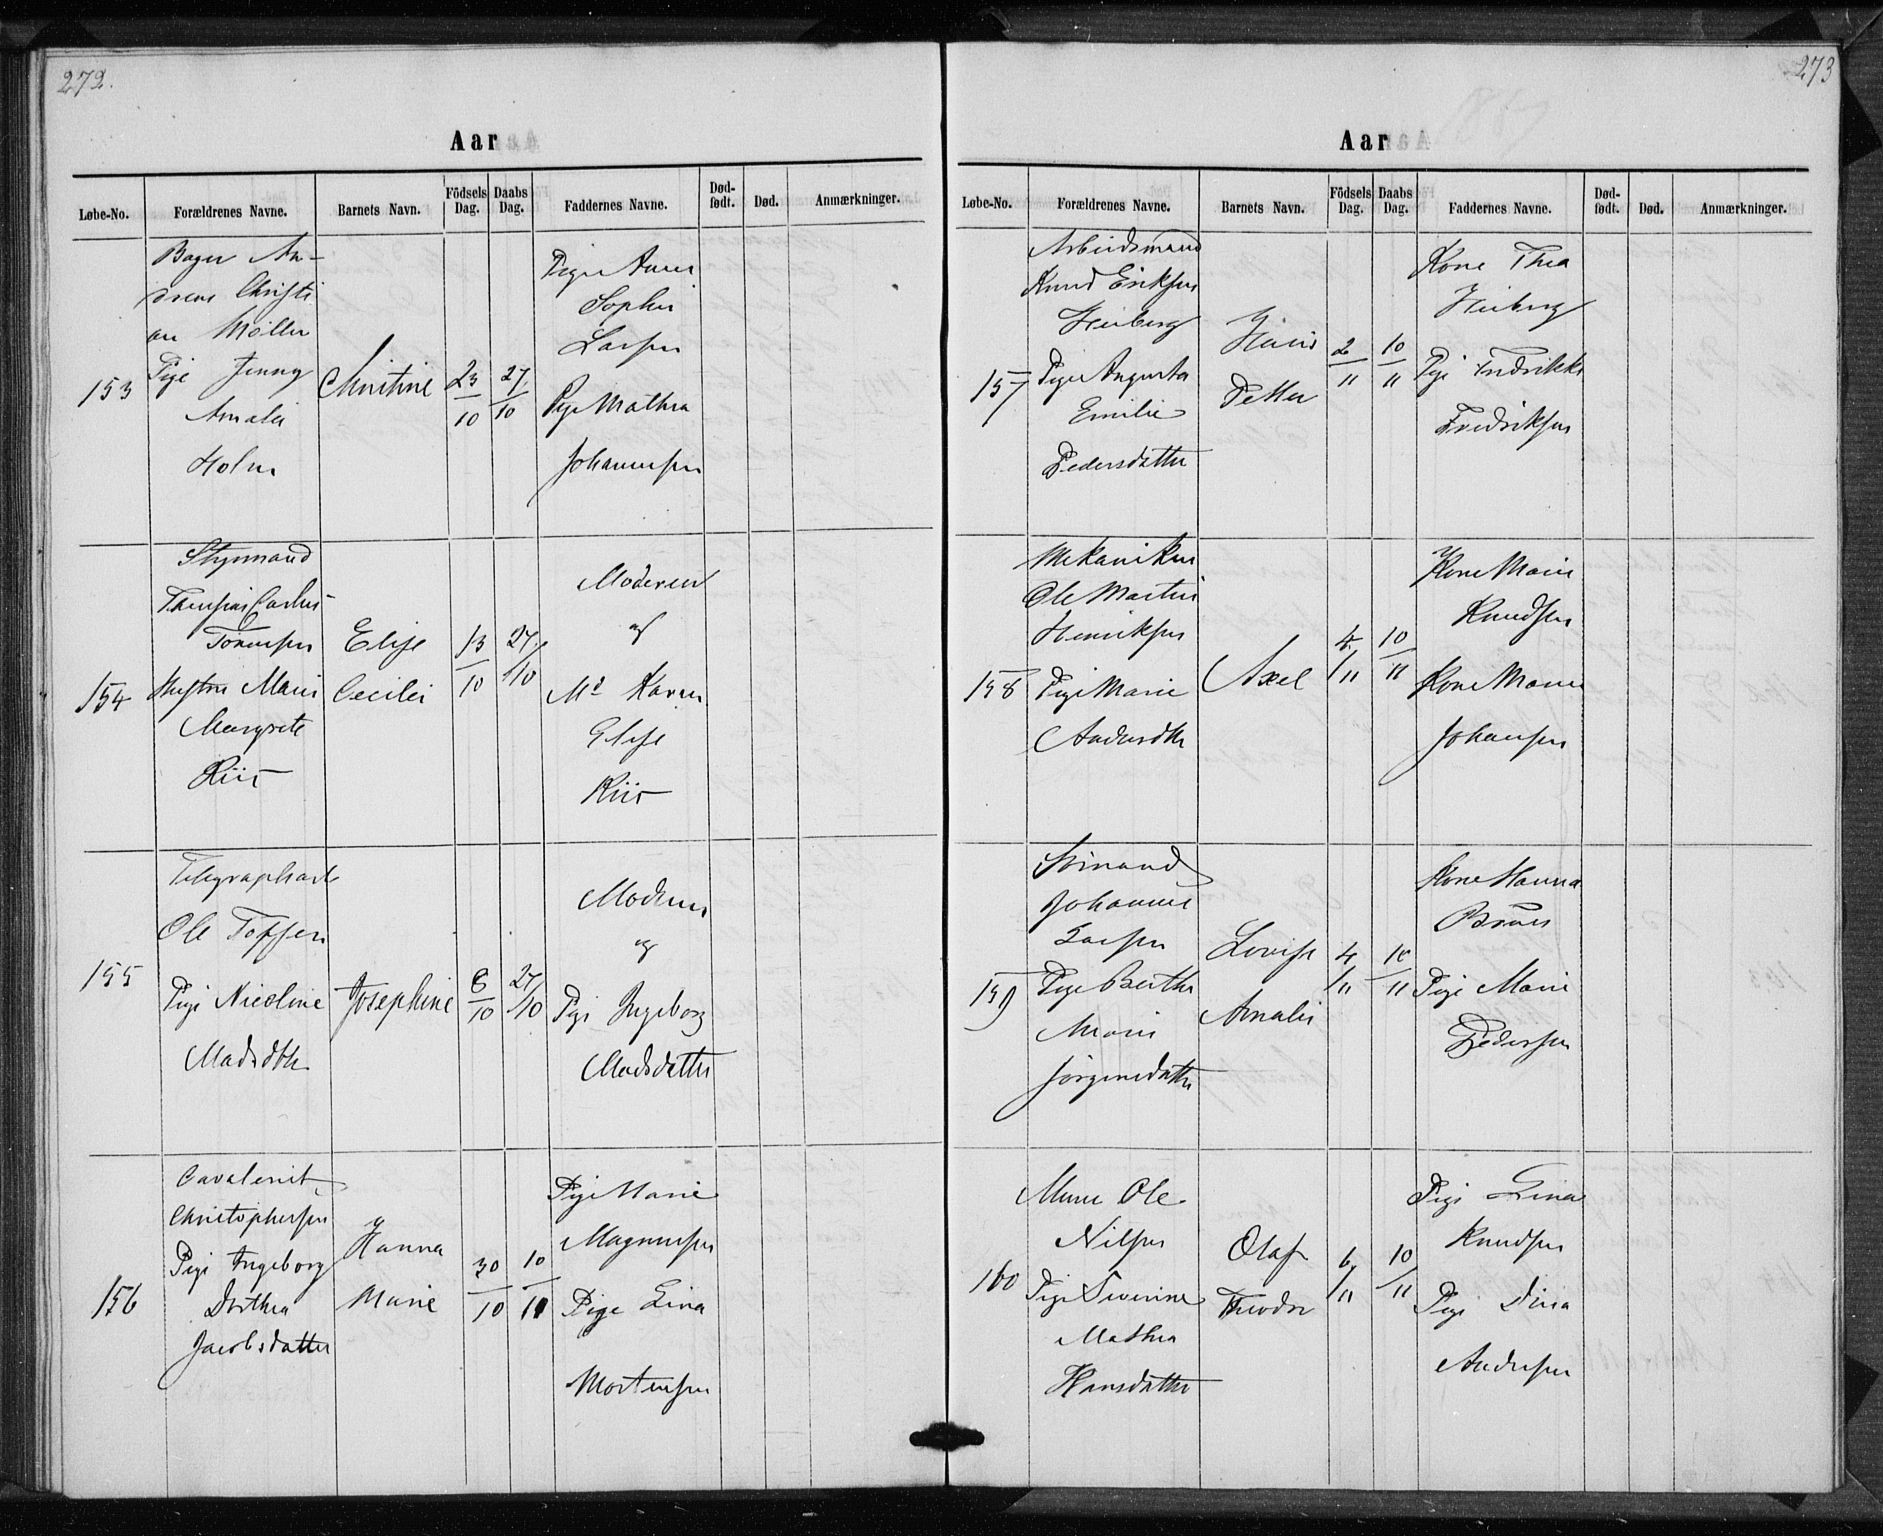 272.
Aar
Løbe-No. Forældrenes Navne. Barnets Navn. Födsels Dag. Daabs Dag. Faddernes Navne. Død-født. Død. Anmærkninger.
153
Bager An-
dreas Christi
an Møller
Pige Jenny
Amalie
Holm
Christine
23/10
27/10
Pige Anne
Sophie
Larsen
Pige Mathea
Johannesen
154
Styrmand
Carlus
Tønnesen
Hustru Marie
Margrete
Riis
Elise
Cecilie
13/10
27/10
Moderen
og
Md Karen
Elise
Riis
155
Ole Toffsen
Pige Nicoline
Madsdtr
Josephine
8/10
27/10
Moderen
og
Pige Ingeborg
Madsdatter
156
Cavalerist
Christophersen
Pige Ingeborg
Dorthea
Jacobsdatter
Hanna
Marie
30/10
10/11
Pige Marie
Magnussen
Pige Lina
Mortensen
273
Aar
Løbe-No. Forældrenes Navne. Barnets Navn. Födsels Dag. Daabs Dag. Faddernes Navne. Død-født. Død. Anmærkninger.
157
Arbeidsmand
Knud Eriksen
Heiberg
Pige Augusta
Emilie
Pedersdatter
Hans
Petter
2/11
10/11
Kone Thea
Heiberg
Pige Fredrikke
Fredriksen
158
Mekanikus
Ole Martin
Henriksen
Pige Marie
Andersdtr
Axel
4/11
10/11
Kone Marie
Knudsen
Kone Maren
Johansen
159
Sømand
Johannes
Larsen
Pige Berthe
Marie
Jørgensdatter
Lovise
Amalie
4/11
10/11
Kone Hanna
Pige Marie
Pedersen
160
Murer Ole
Nilsen
Pige Severine
Mathea
Hansdatter
Olaf
Theodor
6/11
10/11
Pige Lina
Knudsen
Pige Dina
Andersen